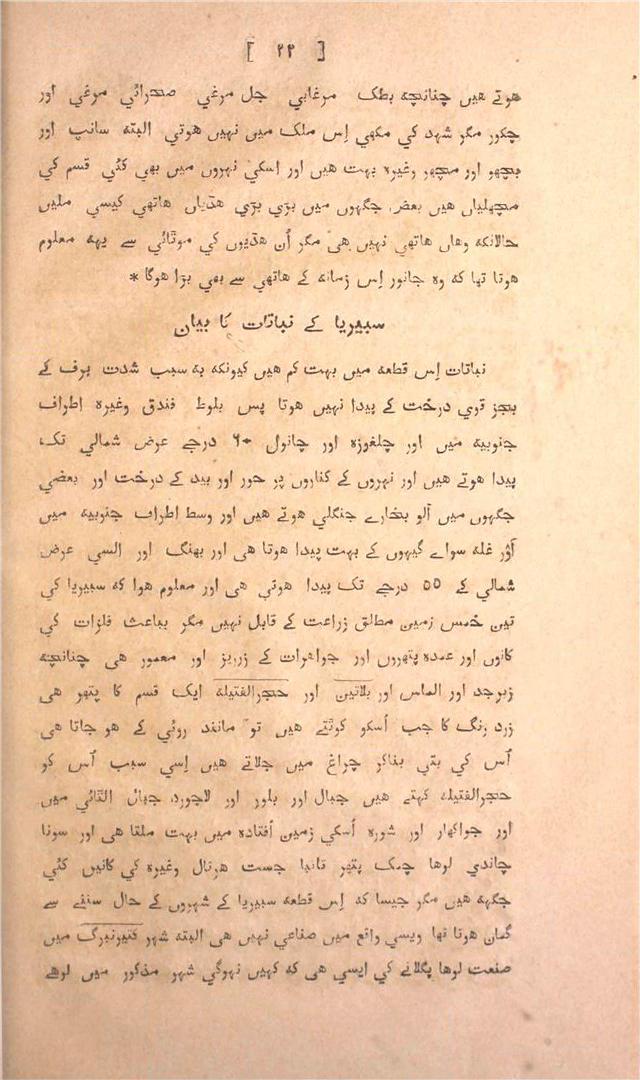 [ ۲۳ ]
هوتے هیں چنانچه بطک مرغابي جل مرغي صحرائي مرغي اور
چکور مگر شهد کي مکهي اِس ملک میں نهیں هوتي البته سانپ اور
بچهو اور مچهر وغیره بهت هیں اور اسکي نهروں میں بهي کئي قسم کي
مچهلیاں هیں بعض جگهوں میں بڑي بڑي هڈیاں هاتهي کیسي ملیں
حالانکه وهاں هاتهي نهیں هی مگر اُن هڈیوں کي موٹائي سے یهه معلوم
هوتا تها که وه جانور اِس زمانه کے هاتهي سے بهي بڑا هوگا *
سبیریا کے نباتات کا بیان
نباتات اِس قطعه میں بهت کم هیں کیونکه به سبب شدت برف کے
بجز قوي درخت کے پیدا نهیں هوتا پس بلوط فندق وغیره اطراف
جنوبیه میں اور چلغوزه اور چانول ۶۰ درجے عرض شمالي تک
پیدا هوتے هیں اور نهروں کے کناروں پر حور اور بید کے درخت اور بعضي
جگهوں میں آلو بخارے جنگلي هوتے هیں اور وسط اطراف جنوبیه میں
اَوْر غله سواے گیهوں کے بهت پیدا هوتا هی اور بهنگ اور السي عرض
شمالي کے ۵۵ درجے تک پیدا هوتي هی اور معلوم هوا که سبیریا کي
تین خمس زمین مطلق زراعت کے قابل نهیں مگر بباعث فلزات کي
کانوں اور عمده پتهروں اور جواهرات کے زرریز اور معمور هی چنانچه
زبرجد اور الماس اور بلاتین اور حجرالفتیله ایک قسم کا پتهر هی
زرد رنگ کا جب اُسکو کوٹتے هیں تو مانند روئي کے هو جاتا هی
اُس کي بتي بناکر چراغ میں جلاتے هیں اِسي سبب اُس کو
حجرالفتیله کهتے هیں جبال اور بلور اور لاجورد جبال الٹائي میں
اور جواکهار اور شوره اُسکي زمین اُفتاده میں بهت ملتا هی اور سونا
چاندي لوها چمک پتهر تانبا جست هرتال وغیره کي کانیں کئي
جگهه هیں مگر جیسا که اِس قطعه سبیریا کے شهروں کے حال سننے سے
گمان هوتا تها ویسي واقع میں صناعي نهیں هی البته شهر کتیرنبرگ میں
صنعت لوها پگلانے کي ایسي هی که کهیں نهوگي شهر مذکور میں لوهے